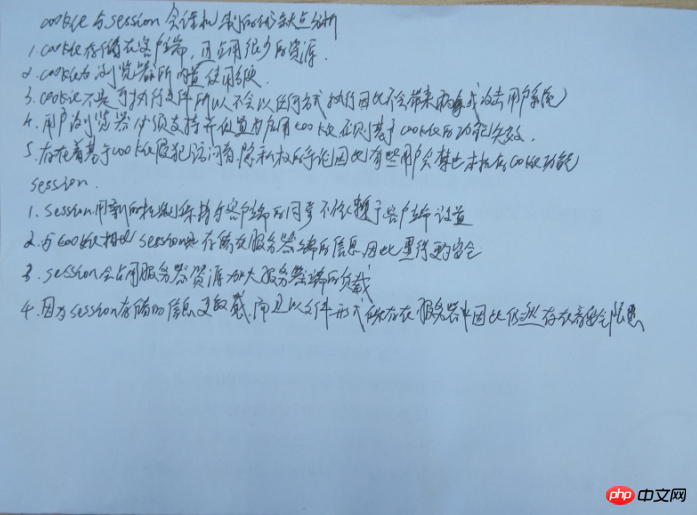 cookie与session会话机制的优缺点分析
1. cookie存储在客户端,且占用很少的资源.
2. cookie为浏览器所内置使用方便
3. cookie不是可执行文件所以不会以任何方式执行因此不会带来病毒或攻击用户系统
4. 用户浏览器必须支持并设置为启用cookie否则基于cookie的功能失效.
5. 存在着基于cookie侵犯访问者隐私权的争论因此有些用户会禁止本机的cookie功能
session.
1. session用新的机制保持与客户端的同步不依赖于客户端设置
2. 与cookie相比session是存储在服务器端的信息,因此显得更安全
3. session会占用服务器资源加大服务器端的负载
4. 因为session存储的信息更敏感,而且以文件形式保存在服务器中因此仍然存在着安全隐患
php 中文网